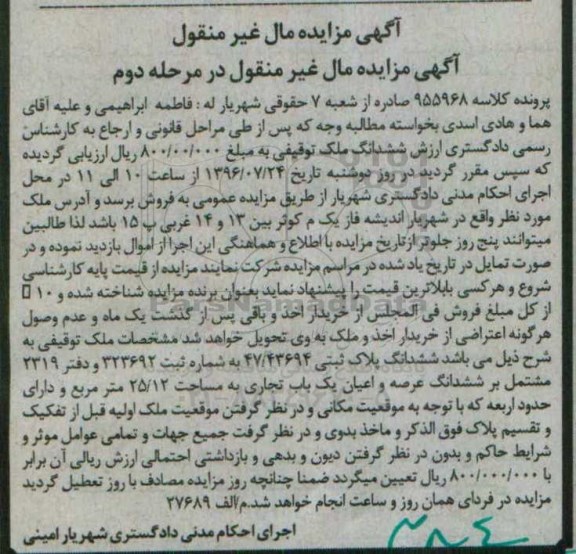 آگهی مزایده مال غیر منقول
آگهی مزایده مال غیر منقول در مرحله دوم
پرونده کلاسه ۹۵۵۹۶۸ صادره از شعبه ۷ حقوقی شهریار له : فاطمه ابراهیمی و علیه آقای
هما و هادی اسدی بخواسته مطالبه وجه که پس از طی مراحل قانونی و ارجاع به کارشناس
رسمی دادگستری ارزش ششدانگ ملک توقیفی به مبلغ ۸۰۰/۰۰/۰۰۰ ریال ارزیابی گردیده
که سپس مقرر گردید در روز دوشنبه تاریخ ۱۳۹۶/۰۷/۲۴ از ساعت ۱۰ الی ۱۱ در محل
اجرای احکام مدنی دادگستری شهریار از طریق مزایده عمومی به فروش برسد و آدرس ملک
مورد نظر واقع در شهریار اندیشه فاز یک م کوثر بین ۱۳ و ۱۴ غربی پ ۱۵ باشد لذا طالبین
میتوانند پنج روز جلوتر ازتاریخ مزایده با اطلاع و هماهنگی این اجرا از اموال بازدید نموده و در
صورت تمایل در تاریخ یاد شده در مراسم مزایده شرکت نمایند مزایده از قیمت پایه کارشناسی
شروع و هرکسی بابلاترین قیمت را پیشنهاد نماید بعنوان برنده مزایده شناخته شده و ۱۰
از کل مبلغ فروش فی المجلس از خریدار اخذ و باقی پس از گذشت یک ماه و عدم وصول
هرگونه اعتراضی از خریدار اخذ و ملک به وی تحویل خواهد شد مشخصات ملک توقیفی به
شرح ذیل می باشد ششدانگ پلاک ثبتی ۴۷/۴۳۶۹۴ به شماره ثبت ۳۲۳۶۹۲ و دفتر ۲۳۱۹
مشتمل بر ششدانگ عرصه و اعیان یک باب تجاری به مساحت ۲۵/۱۲ متر مربع و دارای
حدود اربعه که با توجه به موقعیت مکانی و در نظر گرفتن موقعیت ملک اولیه قبل از تفکیک
و تقسیم پلاک فوق الذکر و ماخذ بدوی و در نظر گرفت جمیع جهات و تمامی عوامل موثر و
شرایط حاکم و بدون در نظر گرفتن دیون و بدهی و بازداشتی احتمالی ارزش ریالی آن برابر
با ۸۰۰/۰۰۰/۰۰۰ ریال تعیین میگردد ضمنا چنانچه روز مزایده مصادف با روز تعطیل گردید
مزایده در فردای همان روز و ساعت انجام خواهد شد.م/الف ۲۷۶۸۹
اجرای احکام مدنی دادگستری شهریار امینی